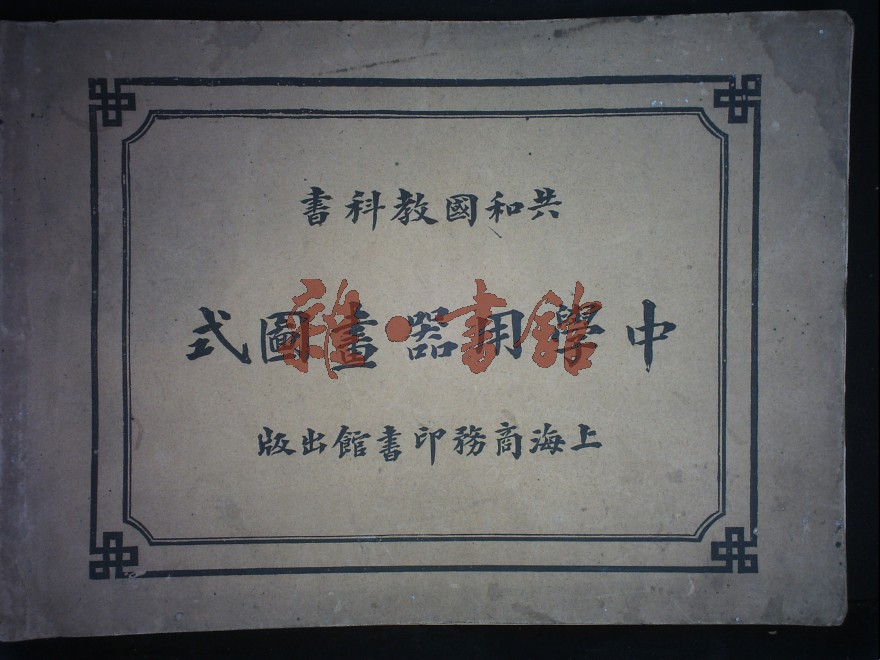 共和國教科書
中學用器畫圖式
上海商務印書館出版
雅·書館